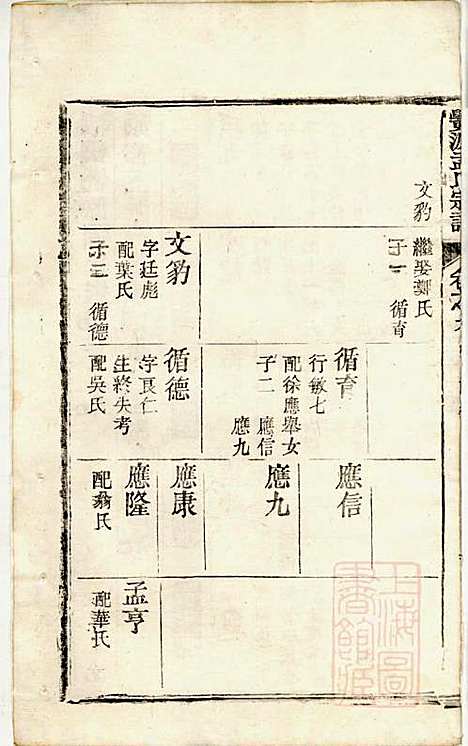 文豹
繼娶鄭氏
子一 循育
循育
行敏七
配徐應舉女
子二 應信
應九
應信
應九
文豹
字廷彪
配葉氏
子三 循德
循德
字良仁
生終失考
配吳氏
應康
應隆
配翁氏
孟亨
配華氏
上海圖
書館藏